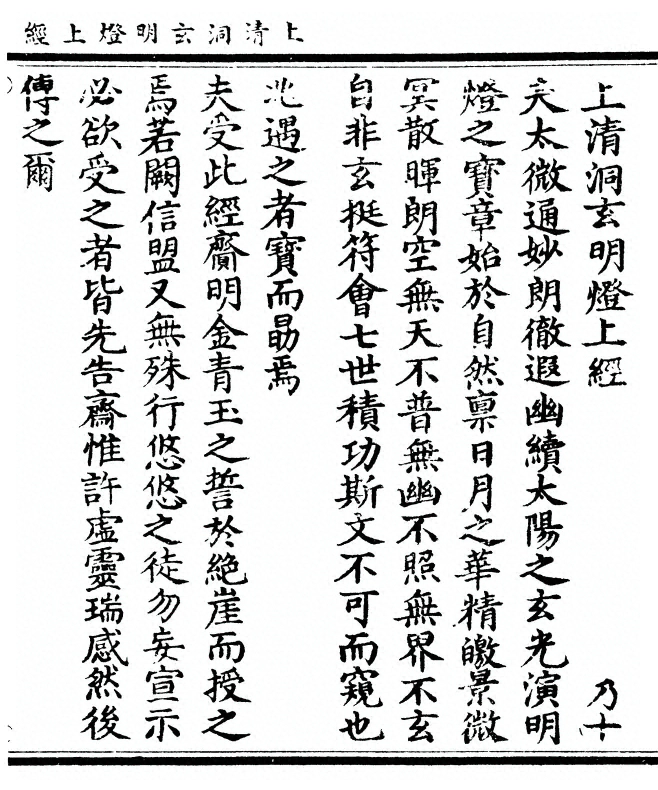 上清洞玄明燈上經
上清洞玄明燈上經 乃十
夫太微通妙朗徹遐幽續太陽之玄光演明
燈之寶章始於自然稟日月之華精皦景微
冥散暉朗空無天不普無幽不照無界不玄
自非玄挺符會七世積功斯文不可而窺也
兆遇之者寶而勗焉
夫受此經齎明金青玉之誓於絶崖而授之
焉若闕信盟又無殊行悠悠之徒勿妄宣示
必欲受之者皆先告齋惟許虛靈瑞感然後
傳之爾